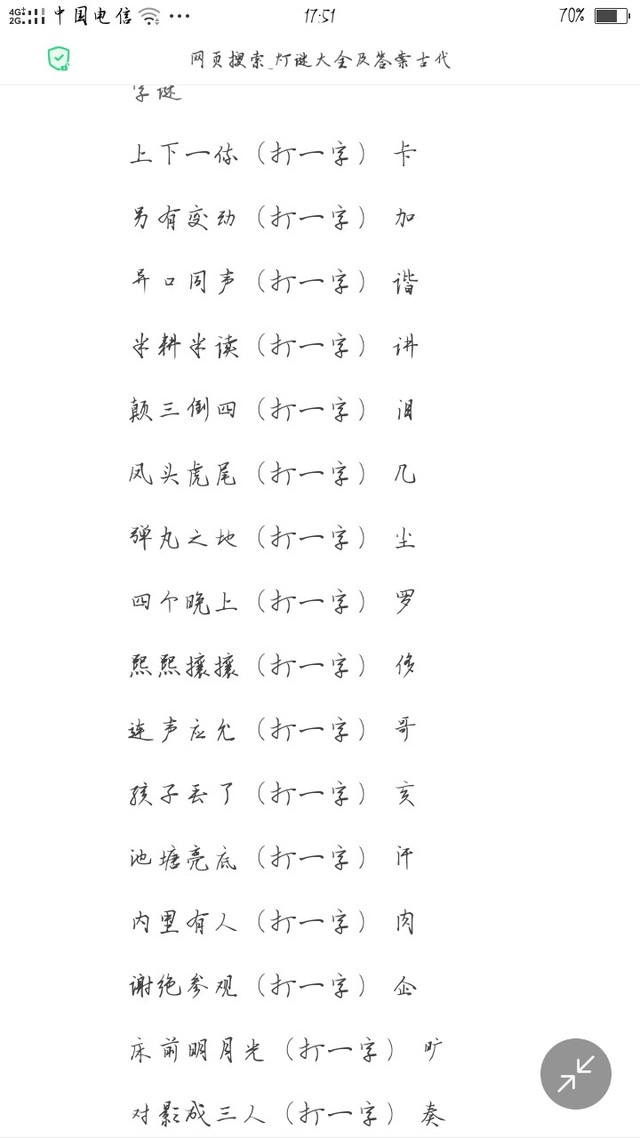 4G+ 2G 中国电信 ... 17:51 70%
网页搜索_灯谜大全及答案古代
字谜
上下一体（打一字） 卡
另有变动（打一字） 加
异口同声（打一字） 谐
半耕半读（打一字） 讲
颠三倒四（打一字） 泪
凤头虎尾（打一字） 几
弹丸之地（打一字） 尘
四个晚上（打一字） 罗
熙熙攘攘（打一字） 侈
连声应允（打一字） 哥
孩子丢了（打一字） 亥
池塘亮底（打一字） 汗
内里有人（打一字） 肉
谢绝参观（打一字） 企
床前明月光（打一字） 旷
对影成三人（打一字） 奏